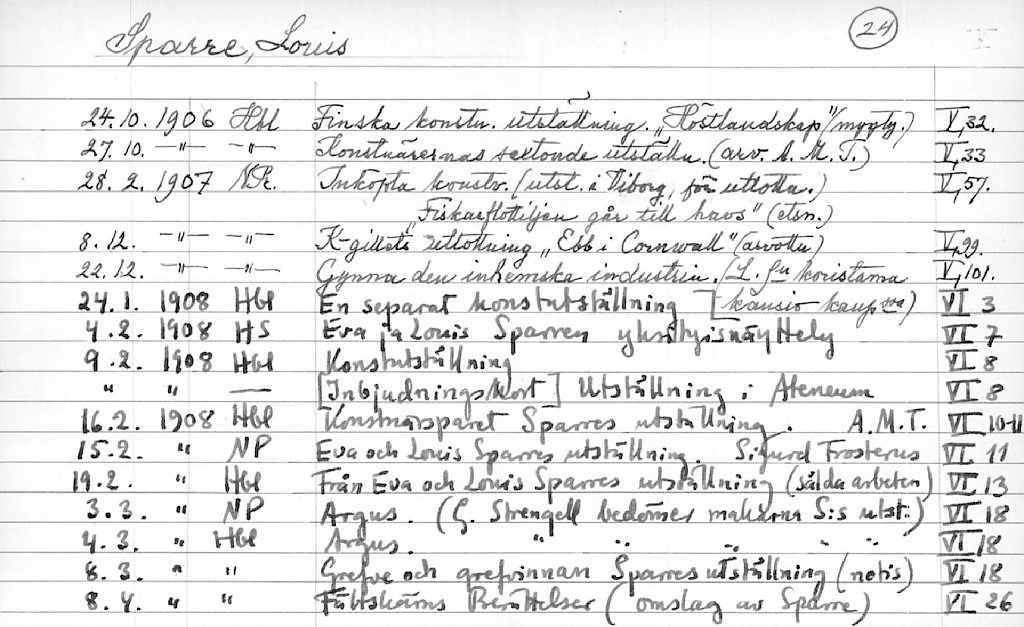 24
Sparre, Louis
24.10. 1906 Hbl Finska konstn. utställning. „Höstlandskap" (mygty.) V, 32.
27.10. —"— —"— Konstnärernas sextonde utställn. (arv. A. M. T.) V, 33
28. 2. 1907 N.Pr. Inköpta konstv. (utst. i Viborg, för utlottn.) V, 57.
„Fiskarflottiljen går till havs" (etsn.)
8.12. —"— —"— K-gillets utlottning „Ebb i Cornwall" (arvottu) V, 99.
22.12. —"— —"— Gynna den inhemska industrin. (L. fu koristama V, 101.
24.1. 1908 Hbl En separat konstutställning [kansio kaup :ssa) VI 3
4.2. 1908 HS Eva ja Louis Sparren yksityisnäyttely VI 7
9.2. 1908 Hbl Konstutställning VI 8
" " — [Inbjudningskort] Utställning i Ateneum VI 8
16.2. 1908 Hbl Konstnärsparet Sparres utställning. A.M.T. VI 10-11
15.2. " NP Eva och Louis Sparres utställning. Sigurd Frosterus VI 11
19.2. " Hbl Från Eva och Louis Sparres utställning (sålda arbeten) VI 13
3.3. " NP Argus. (G. Strengell bedömer makarna S:s utst.) VI 18
4.3. " Hbl Argus. " " " " " VI 18
8.3. " " Grefve och grefvinnan Sparres utställning (notis) VI 18
8.4. " " Fältskärns Berättelser (omslag av Sparre) VI 26